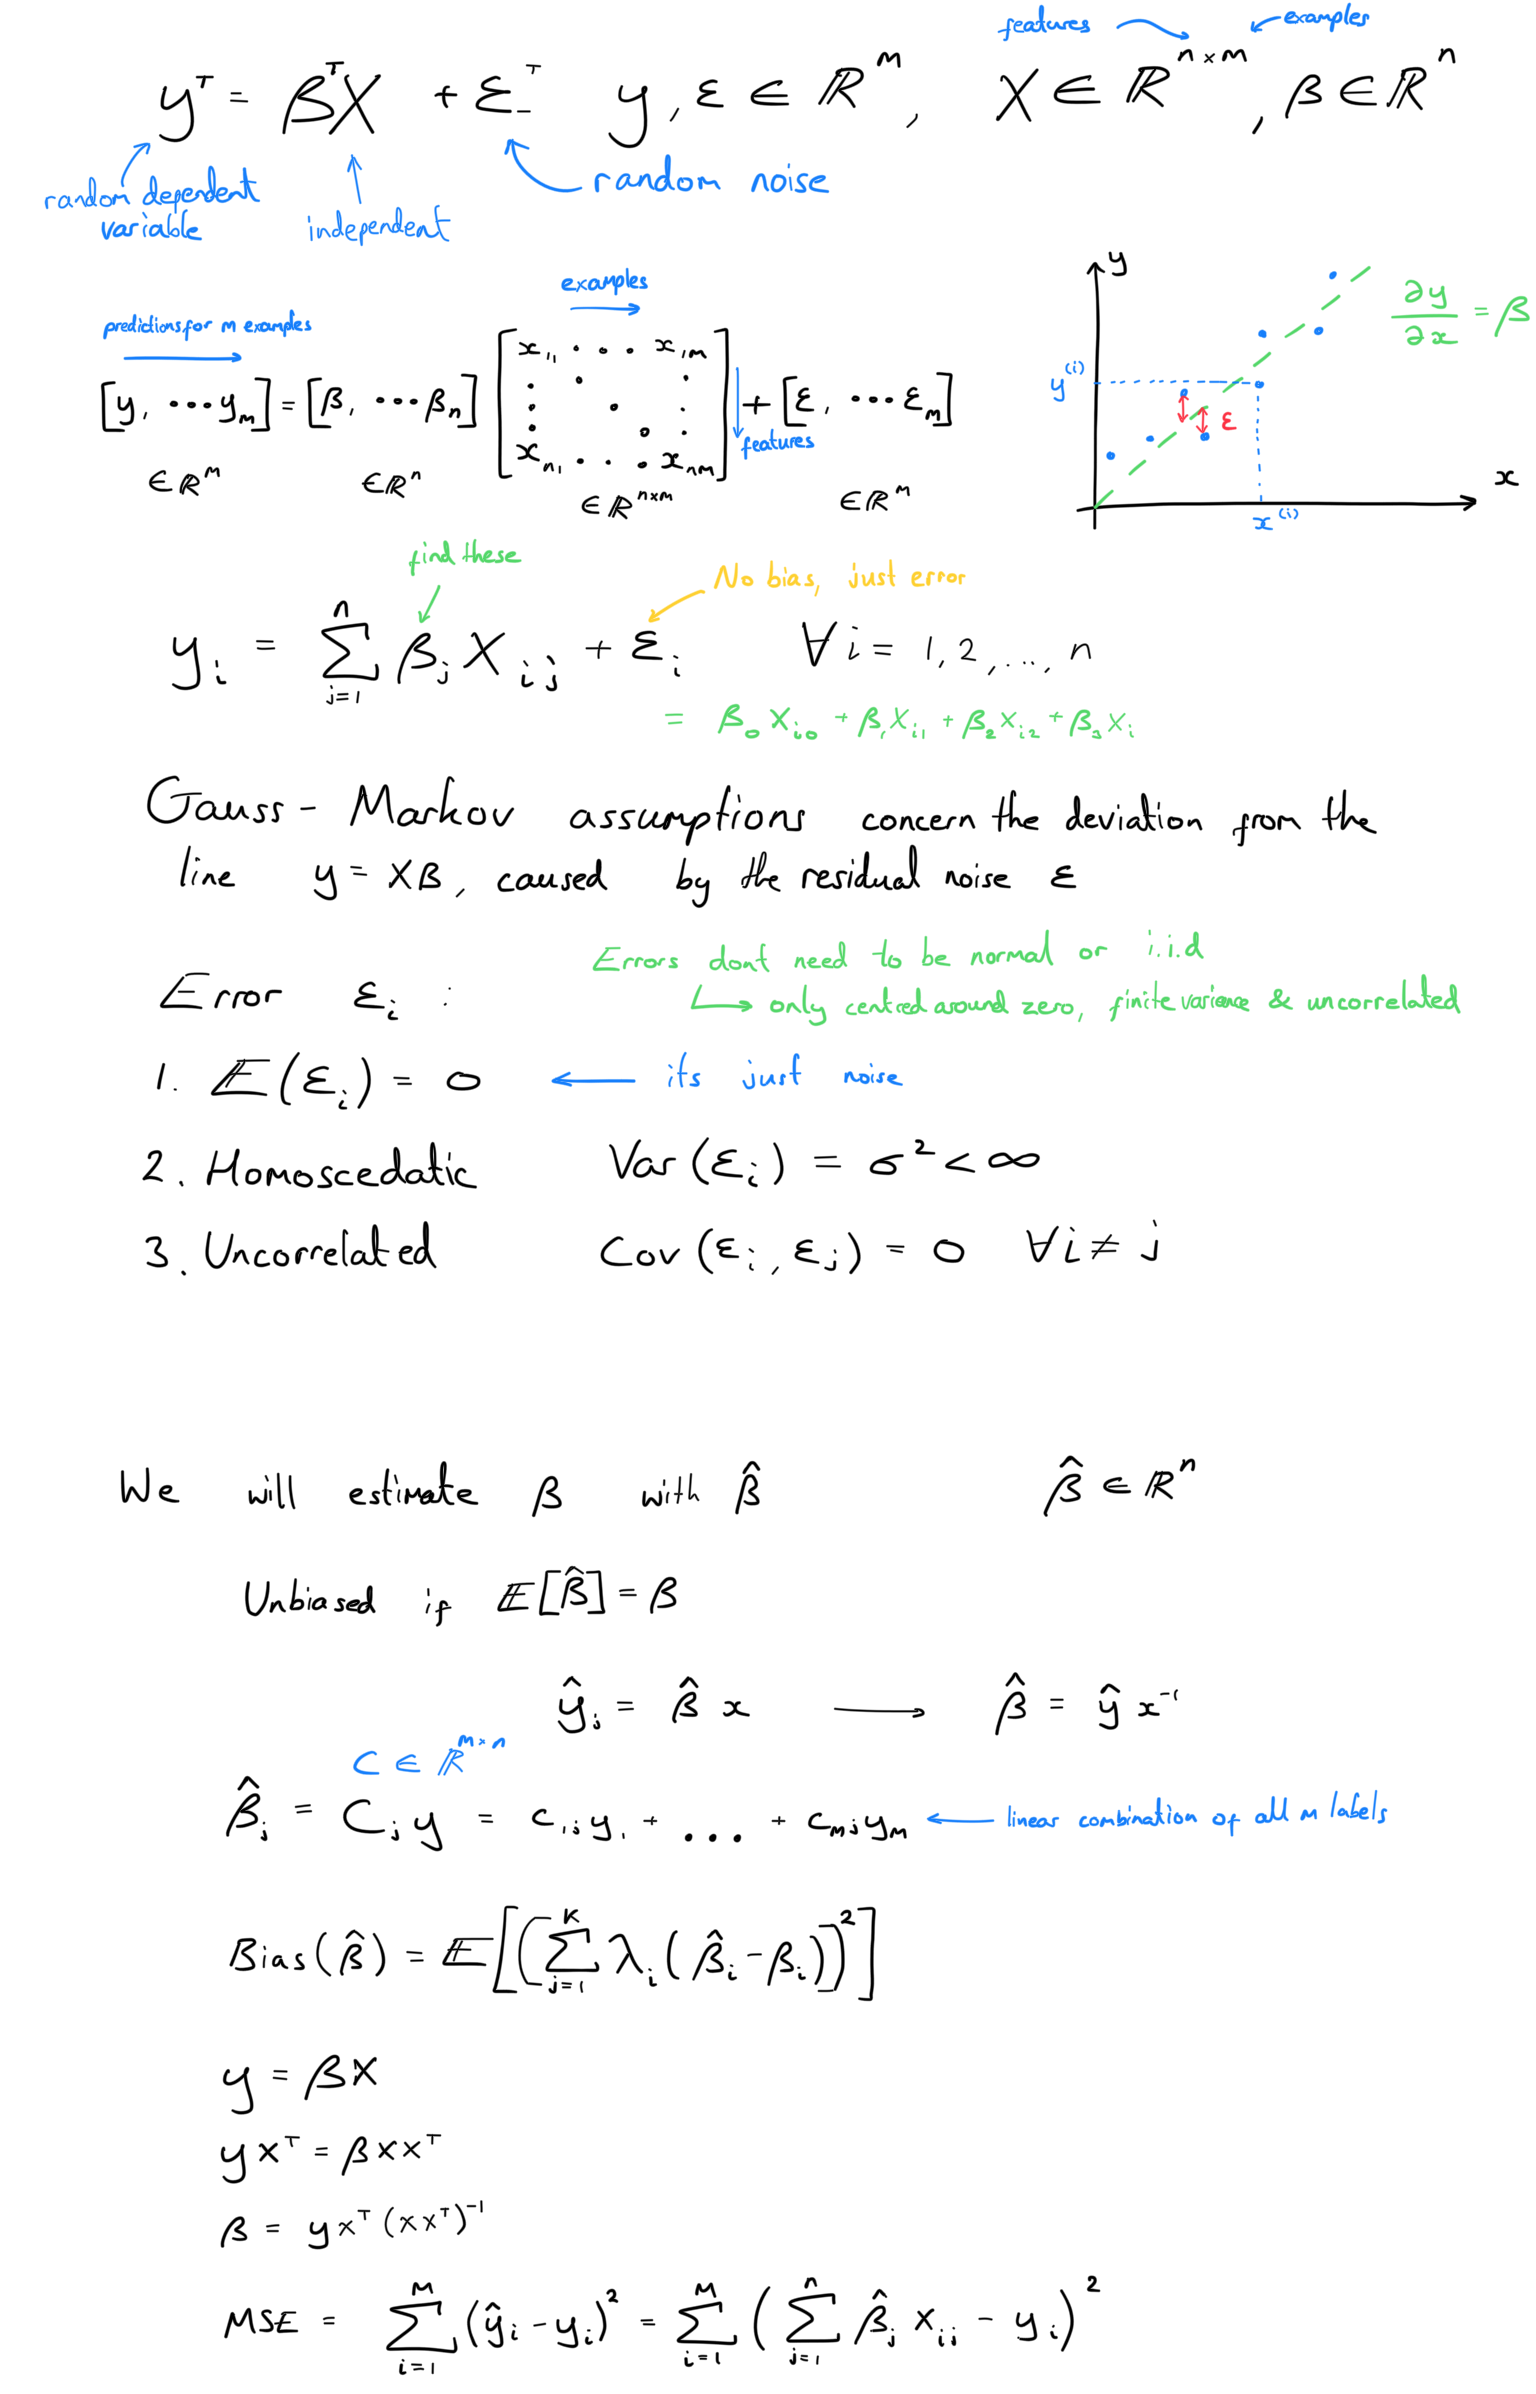 features examples
yᵀ = βᵀX + εᵀ y, ε ∈ ℝᵐ, X ∈ ℝⁿˣᵐ, β ∈ ℝⁿ
random dependent variable
independent
random noise
examples
predictions for m examples
[y₁ ... yₘ] = [β₁ ... βₙ] [x₁₁ ... x₁ₘ
xₙ₁ ... xₙₘ] + [ε₁ ... εₘ]
features
∈ ℝᵐ ∈ ℝⁿ ∈ ℝⁿˣᵐ ∈ ℝᵐ
y
∂y/∂x = β
y⁽ⁱ⁾
ε
x
x⁽ⁱ⁾
find these
No bias, just error
y_i = Σ_{j=1}^{n} β_j X_{ij} + ε_i ∀ i = 1, 2, ..., n
= β₀ X_{i0} + β₁ X_{i1} + β₂ X_{i2} + β₃ X_i
Gauss - Markov assumptions concern the deviation from the
line y = Xβ, caused by the residual noise ε
Errors dont need to be normal or i.i.d
Error ε_i :
only centred around zero, finite variance & uncorrelated
1. 𝔼(ε_i) = 0 ← its just noise
2. Homoscedatic Var(ε_i) = σ² < ∞
3. Uncorrelated Cov(ε_i, ε_j) = 0 ∀ i ≠ j
We will estimate β with β̂ β̂ ∈ ℝⁿ
Unbiased if 𝔼[β̂] = β
ŷ_i = β̂ x → β̂ = ŷ x⁻¹
C ∈ ℝᵐˣⁿ
β̂_j = C_j y = c_{1j} y₁ + ... + c_{mj} yₘ ← linear combination of all m labels
Bias(β̂) = 𝔼[(Σ_{j=1}^{K} λ_i (β̂_i - β_i))²]
y = βX
yXᵀ = βXXᵀ
β = yXᵀ(XXᵀ)⁻¹
MSE = Σ_{i=1}^{m} (ŷ_i - y_i)² = Σ_{i=1}^{m} (Σ_{j=1}^{n} β̂_j X_{ij} - y_i)²